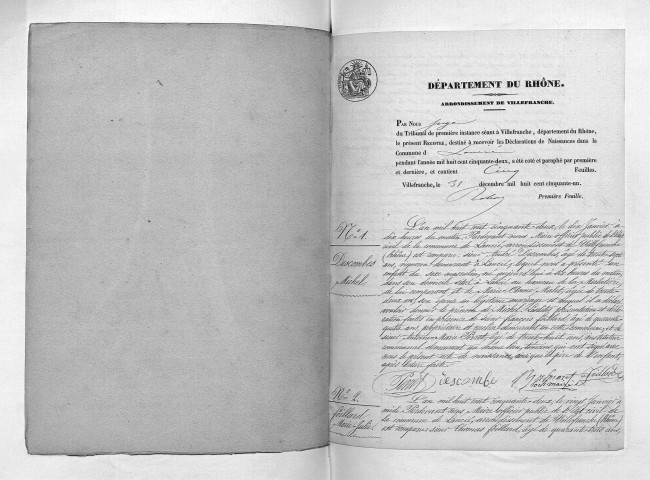 DÉPARTEMENT DU RHÔNE.
ARRONDISSEMENT DE VILLEFRANCHE.
PAR NOUS Juge
du Tribunal de première instance séant à Villefranche, département du Rhône,
le présent REGISTRE, destiné à recevoir les Déclarations de Naissances dans la
Commune d Lancié
pendant l'année mil huit cent cinquante-deux, a été coté et paraphé par première
et dernière, et contient Cinq Feuilles.
Villefranche, le 31 décembre mil huit cent cinquante-un.
Première Feuille.
N° 1.
Descombes
Michel.
L'an mil huit cent cinquante-deux, le dix Janvier à
dix heures du matin, Pardevant nous Maire officier public de l'état
civil de la commune de Lancié, arrondissement de Villefranche
(Rhône) est comparu sieur André Descombes, âgé de trente
ans, vigneron demeurant à Lancié, lequel nous a présenté un
enfant du sexe masculin, né
dans son domicile
de lui comparant et de Marie
deux ans, son épouse en légitime mariage et auquel il a déclaré
vouloir donner le prénom de Michel. Lesdites présentation et décla-
ration faites en présence de sieur françois foillard, âgé de quarante
quatre ans, propriétaire et
sieur Antoine Marie âgé de trente huit ans, instituteur
communal demeurant témoins qui ont signé avec
nous le présent acte de naissance, ainsi que le père de l'enfant,
après lecture faite.
Descombe
N° 2.
foillard
Marie
L'an mil huit cent cinquante-deux, le vingt Janvier à
midi Pardevant nous Maire officier public de l'état civil de
la commune de Lancié, arrondissement de Villefranche (Rhône)
est comparu sieur Thomas foillard, âgé de quarante trois ans,